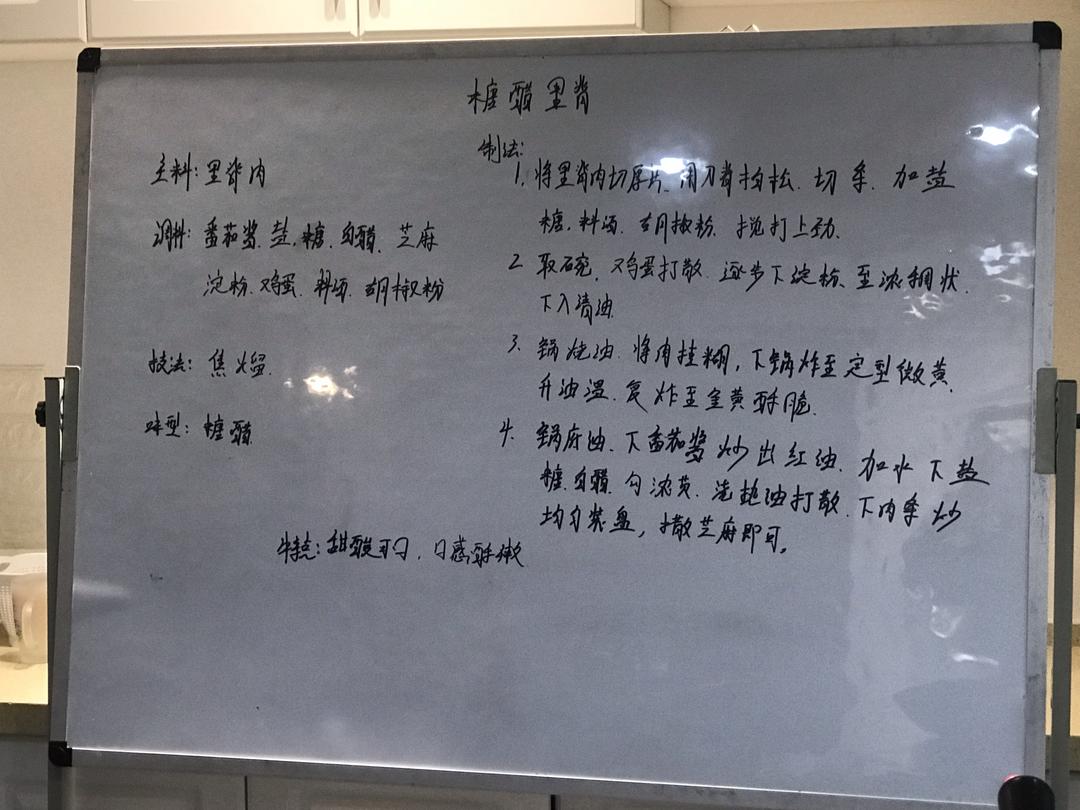 糖醋里脊
主料: 里脊肉
调料: 番茄酱、盐、糖、白醋、芝麻
淀粉、鸡蛋、料酒、胡椒粉
技法: 焦熘
味型: 糖醋
特点: 甜酸可口, 口感酥嫩
制法:
1. 将里脊肉切厚片、用刀背拍松、切条、加盐
糖、料酒、胡椒粉、搅打上劲、
2 取碗, 鸡蛋打散、逐步下淀粉、至浓稠状、
下入清油
3. 锅烧油、将肉挂糊, 下锅炸至定型微黄、
升油温、复炸至金黄酥脆
4. 锅底油、下番茄酱炒出红油、加水下盐
糖、白醋、勾浓芡、浇热油打散、下肉条炒
均匀装盘, 撒芝麻即可。